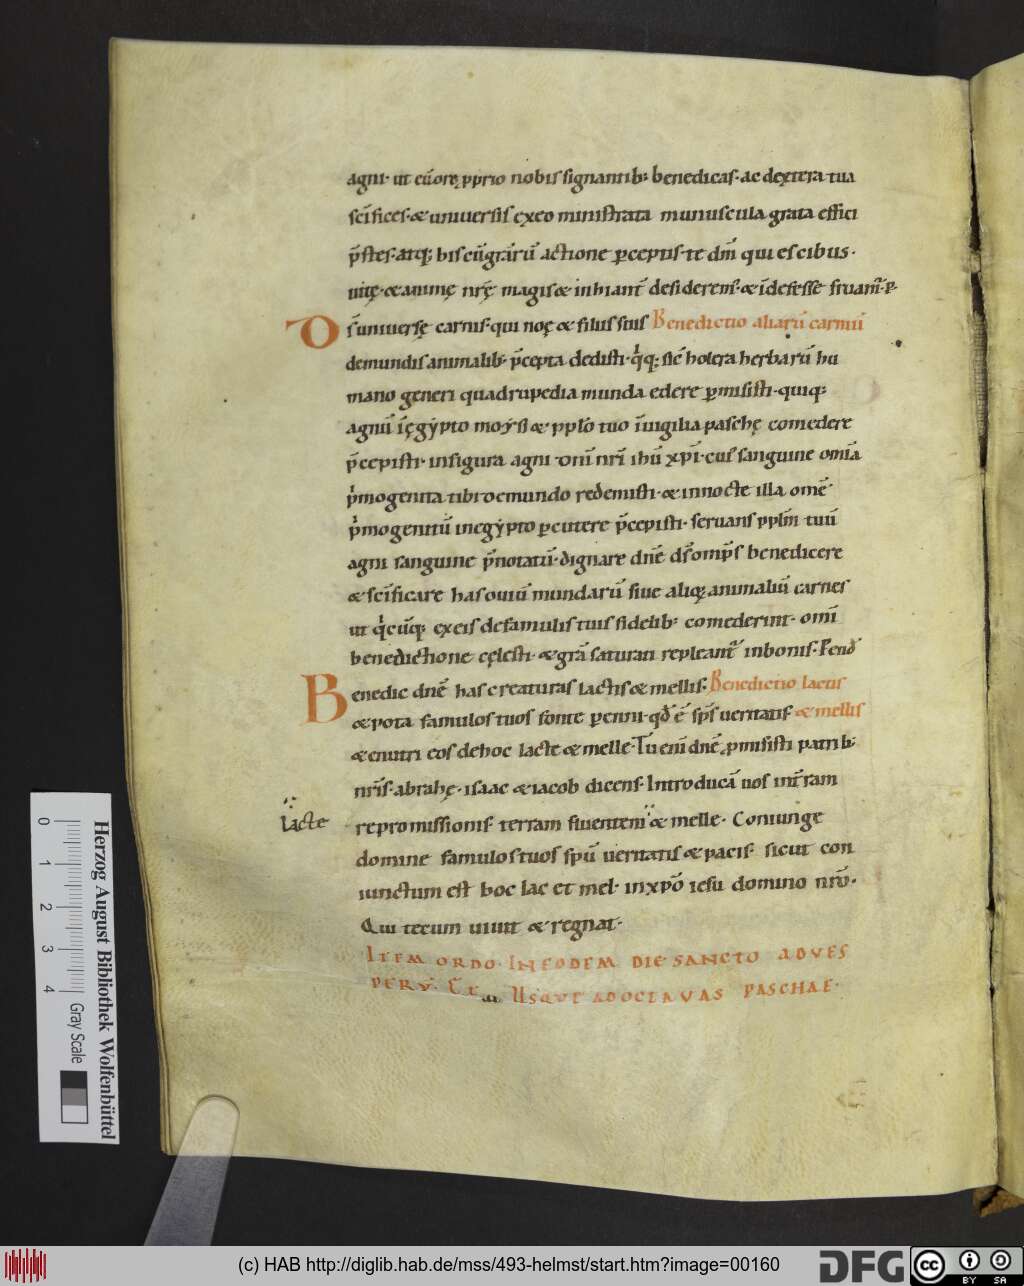 agni· ut cū ore ꝓprio nobis signantib; benedicas· ac dextera tua
sc̄ifices· & uniuersis ex eo ministrata munuscula grata effici
p̄stes· atq; his cū gr̄arū actione ꝑceptis· te dm̄ qui es cibus·
uitę· & animę nrę̄ magis & inhiant desiderent· & īdefesse fruamur· p
D s̄ uniuersę carnis· qui noę & filiis suis Benedictio aliarū carniū
de mundis animalib; p̄cepta dedisti· qiq; sic holera herbarū hu
mano generi quadrupedia munda edere ꝑmisisti· quiq;
agnū ī ęgẏpto moẏsi & pplo tuo ī uigilia paschę comedere
p̄cepisti· in figura agni dn̄i nr̄i ihū xp̄i· cuius sanguine omīa
pimogenita tibi de mundo redemisti· & in nocte illa om̄e
pimogenitū in egẏpto ꝑcutere p̄cepisti· seruans pplm̄ tuū
agni sanguine p̄notatū· dignare dn̄e ds̄ omp̄s benedicere
& sc̄ificare has ouiū mundarū siue aliaꝝ animaliū carnes
ut qicūq; ex eis de famulis tuis fidelib; comederint· omī
benedictione cęlesti· & grā saturati repleantur in bonis· Per
B enedic dn̄e has creaturas lactis & mellis· Benedictio lactis
& pota famulos tuos fonte ꝑenni· qd̄ ē sp̄s ueritatis & mellis
& enutri eos de hoc lacte & melle· Tu enī dn̄e ꝓmisisti patrib;
nr̄is· abrahę· isaac & iacob dicens· Introducā uos in terram
lacte
repromissionis terram fluentem & melle· Coniunge
domine famulos tuos spū ueritatis & pacis sicut con
iunctum est hoc lac et mel· in xp̄o iesu domino nr̄o·
Qui tecum uiuit & regnat·
ITEM ORDO· IN EODEM DIE SANCTO AD VES
PERV̄· USQVE AD OCTAVAS PASCHAE·
Herzog August Bibliothek Wolfenbüttel
0 1 2 3 4 Gray Scale
(c) HAB http://diglib.hab.de/mss/493-helmst/start.htm?image=00160
DFG cc BY SA